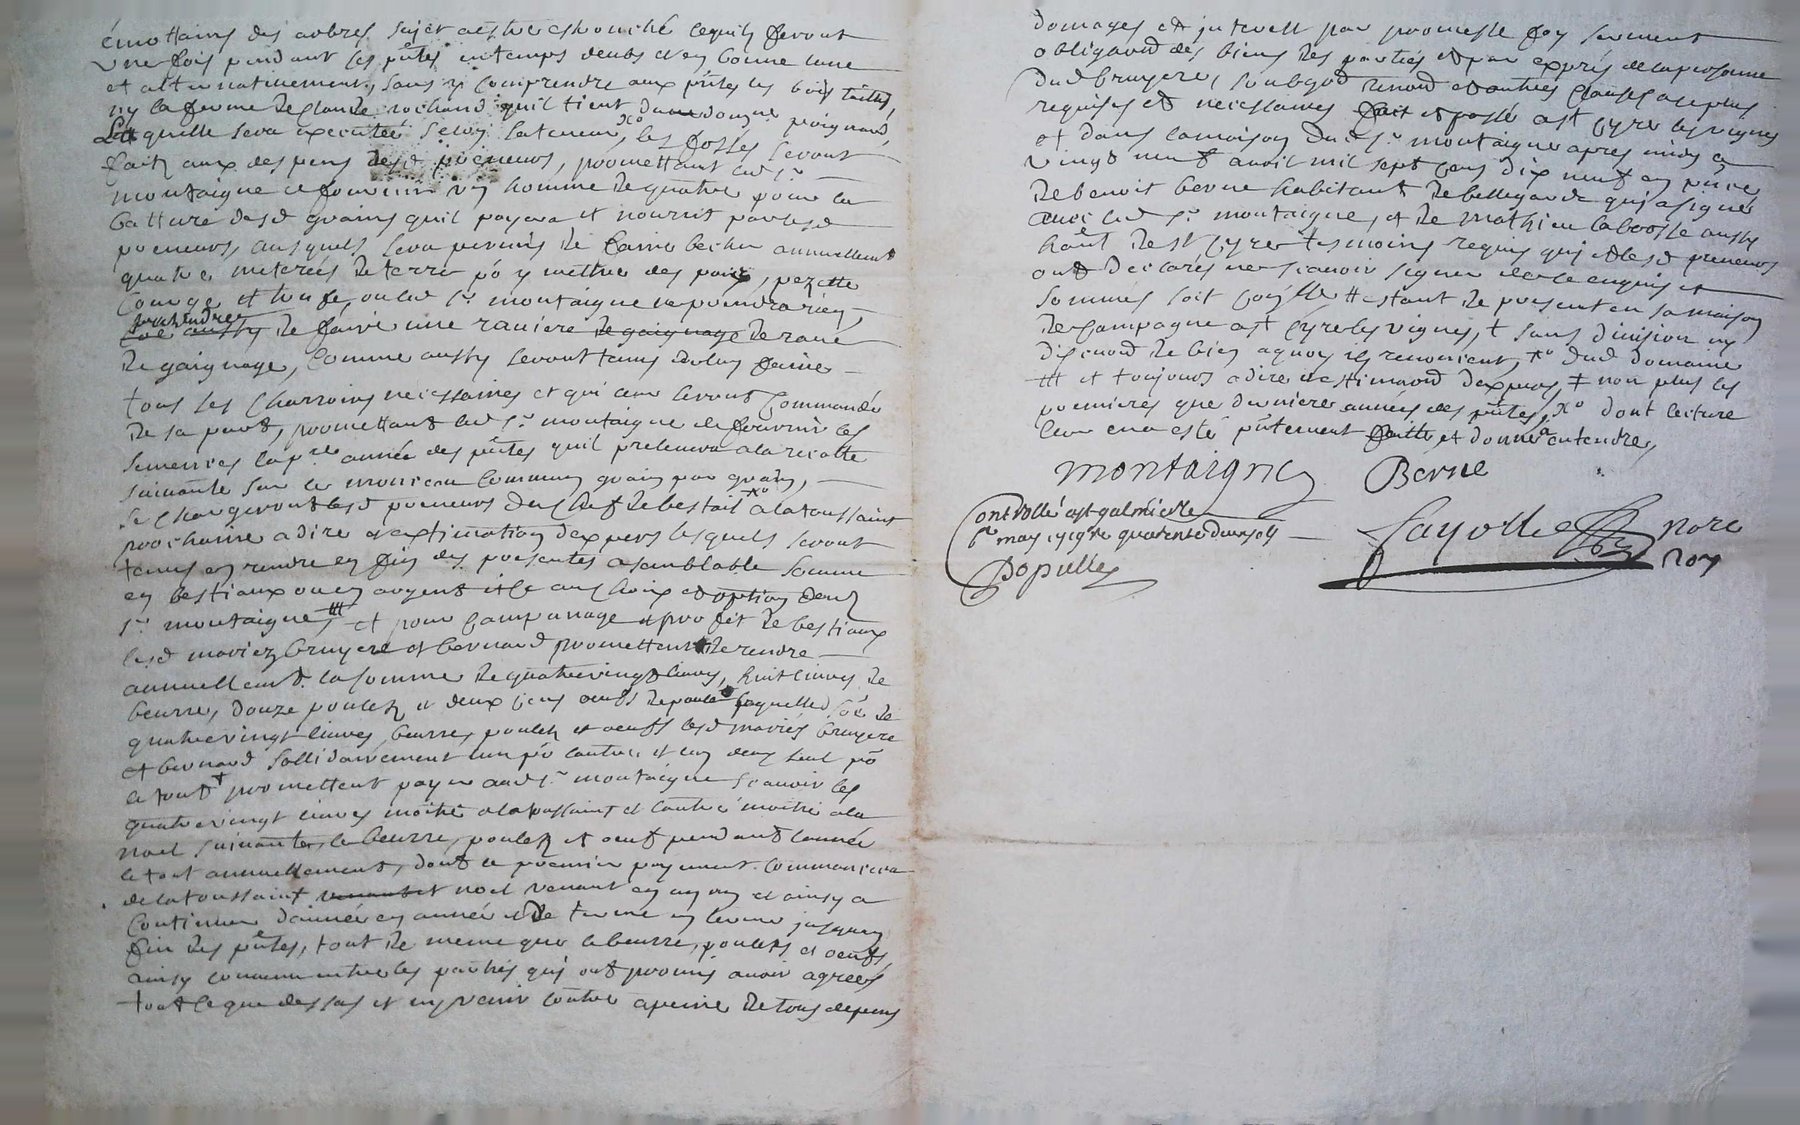 émottains des arbres sujet a estre esbouché ce quils feront
une fois pendant les ptes en temps deubs et en bonne lune
et alternativement, sans y comprendre aux ptes les bois taillis,
ny la ferme de Claude rochand quil tient
Laquelle sera executée selon sa teneur, les fosses seront
fait aux despens desd preneurs, promettant led sr
montaigne de fournir un homme de quatre pour la
batture desd grains quil payera et nourrit par lesd
preneurs, ausquels sera permis de faire becher annuellement
quatre meterées de terre po y mettre des pois, pezette
Courge et , ou led sr montaigne ne prendra rien,
de faire une raviere de gaignage de rave
de gaignage, Comme aussy seront tenus de luy faire
tous les Charrois necessaires et qui leur seront Commandé
de sa part, promettant led sr montaigne de fournir les
semences la pre année des ptes quil prelevera a la recolte
suivante sur le monceau Commun grain par grain,
se Chargeront lesd preneurs du Cheft de bestail a la toussaint
prochaine a dire et extimation dexpers lesquels seront
tenus en rendre en fin des presentes a semblable somme
en bestiaux ou en argent et ce au choix et option dud
sr montaigne, et pour campanage et proffit de bestiaux
lesd mariez bruyere et bernard promettent de rendre
annuellemt la somme de quatrevingt livres, huit livres de
beurre, douze poulets et deux cens oeufs de poule laquelle soe de
quatrevingt livres, beurre, poulets et oeufs lesd mariés bruyere
et bernard sollidairement lun po lautre et un deux seul po
le tout promettent payer aud sr montaigne scavoir les
quatrevingt livres moitié a la toussaint et lautre moitié a la
noel suivante, le beurre, poulets et oeufs pendant lannée
le tout annuellement, dont le premier payement commancera
de la toussaint noel venant en un an et ainsy a
Continuer dannée en année et de terme en terme jusquen
fin des ptes, tout de meme que le beurre, poulets et oeufs,
ainsy convenu entre les parties qui ont promis avoir agreés
tout ce que dessus et ny venir contre a peine de tous depens
domages et interest par promesse foy serment
obligaon des biens des parties et par exprés de la personne
dud bruyere, renon et autres clauses a ce plus
requises et necessaires fait et passé a st Cyre les vignes
et dans la maison dud sr montaigne apres midy ce
vingt neuf avril mil sept cens dix neuf en pnce
de benoit berne habitant de bellegarde qui a signé
avec led sr montaigne, et de mathieu labosse aussy
habt de st Cyre tesmoins requis qui et lesd preneurs
ont declarés ne scavoir signer de ce enquis et
sommés soit estant de present en sa maison
de Campagne a st Cyre les vignes, † sans division ny
discution de bien a quoy ils renoncent, Xo dud domaine
ttt et toujours a dire et estimaon dexpers, ‡ non plus les
premieres que dernieres années des ptes, Xo dont lecture
leur en a esté ptement faitte et donné a entendre,
montaigne Berne
Controllé a st galmier le
1er may 1719 re quarente deux sols
Populle
Fayolle nore
Roy